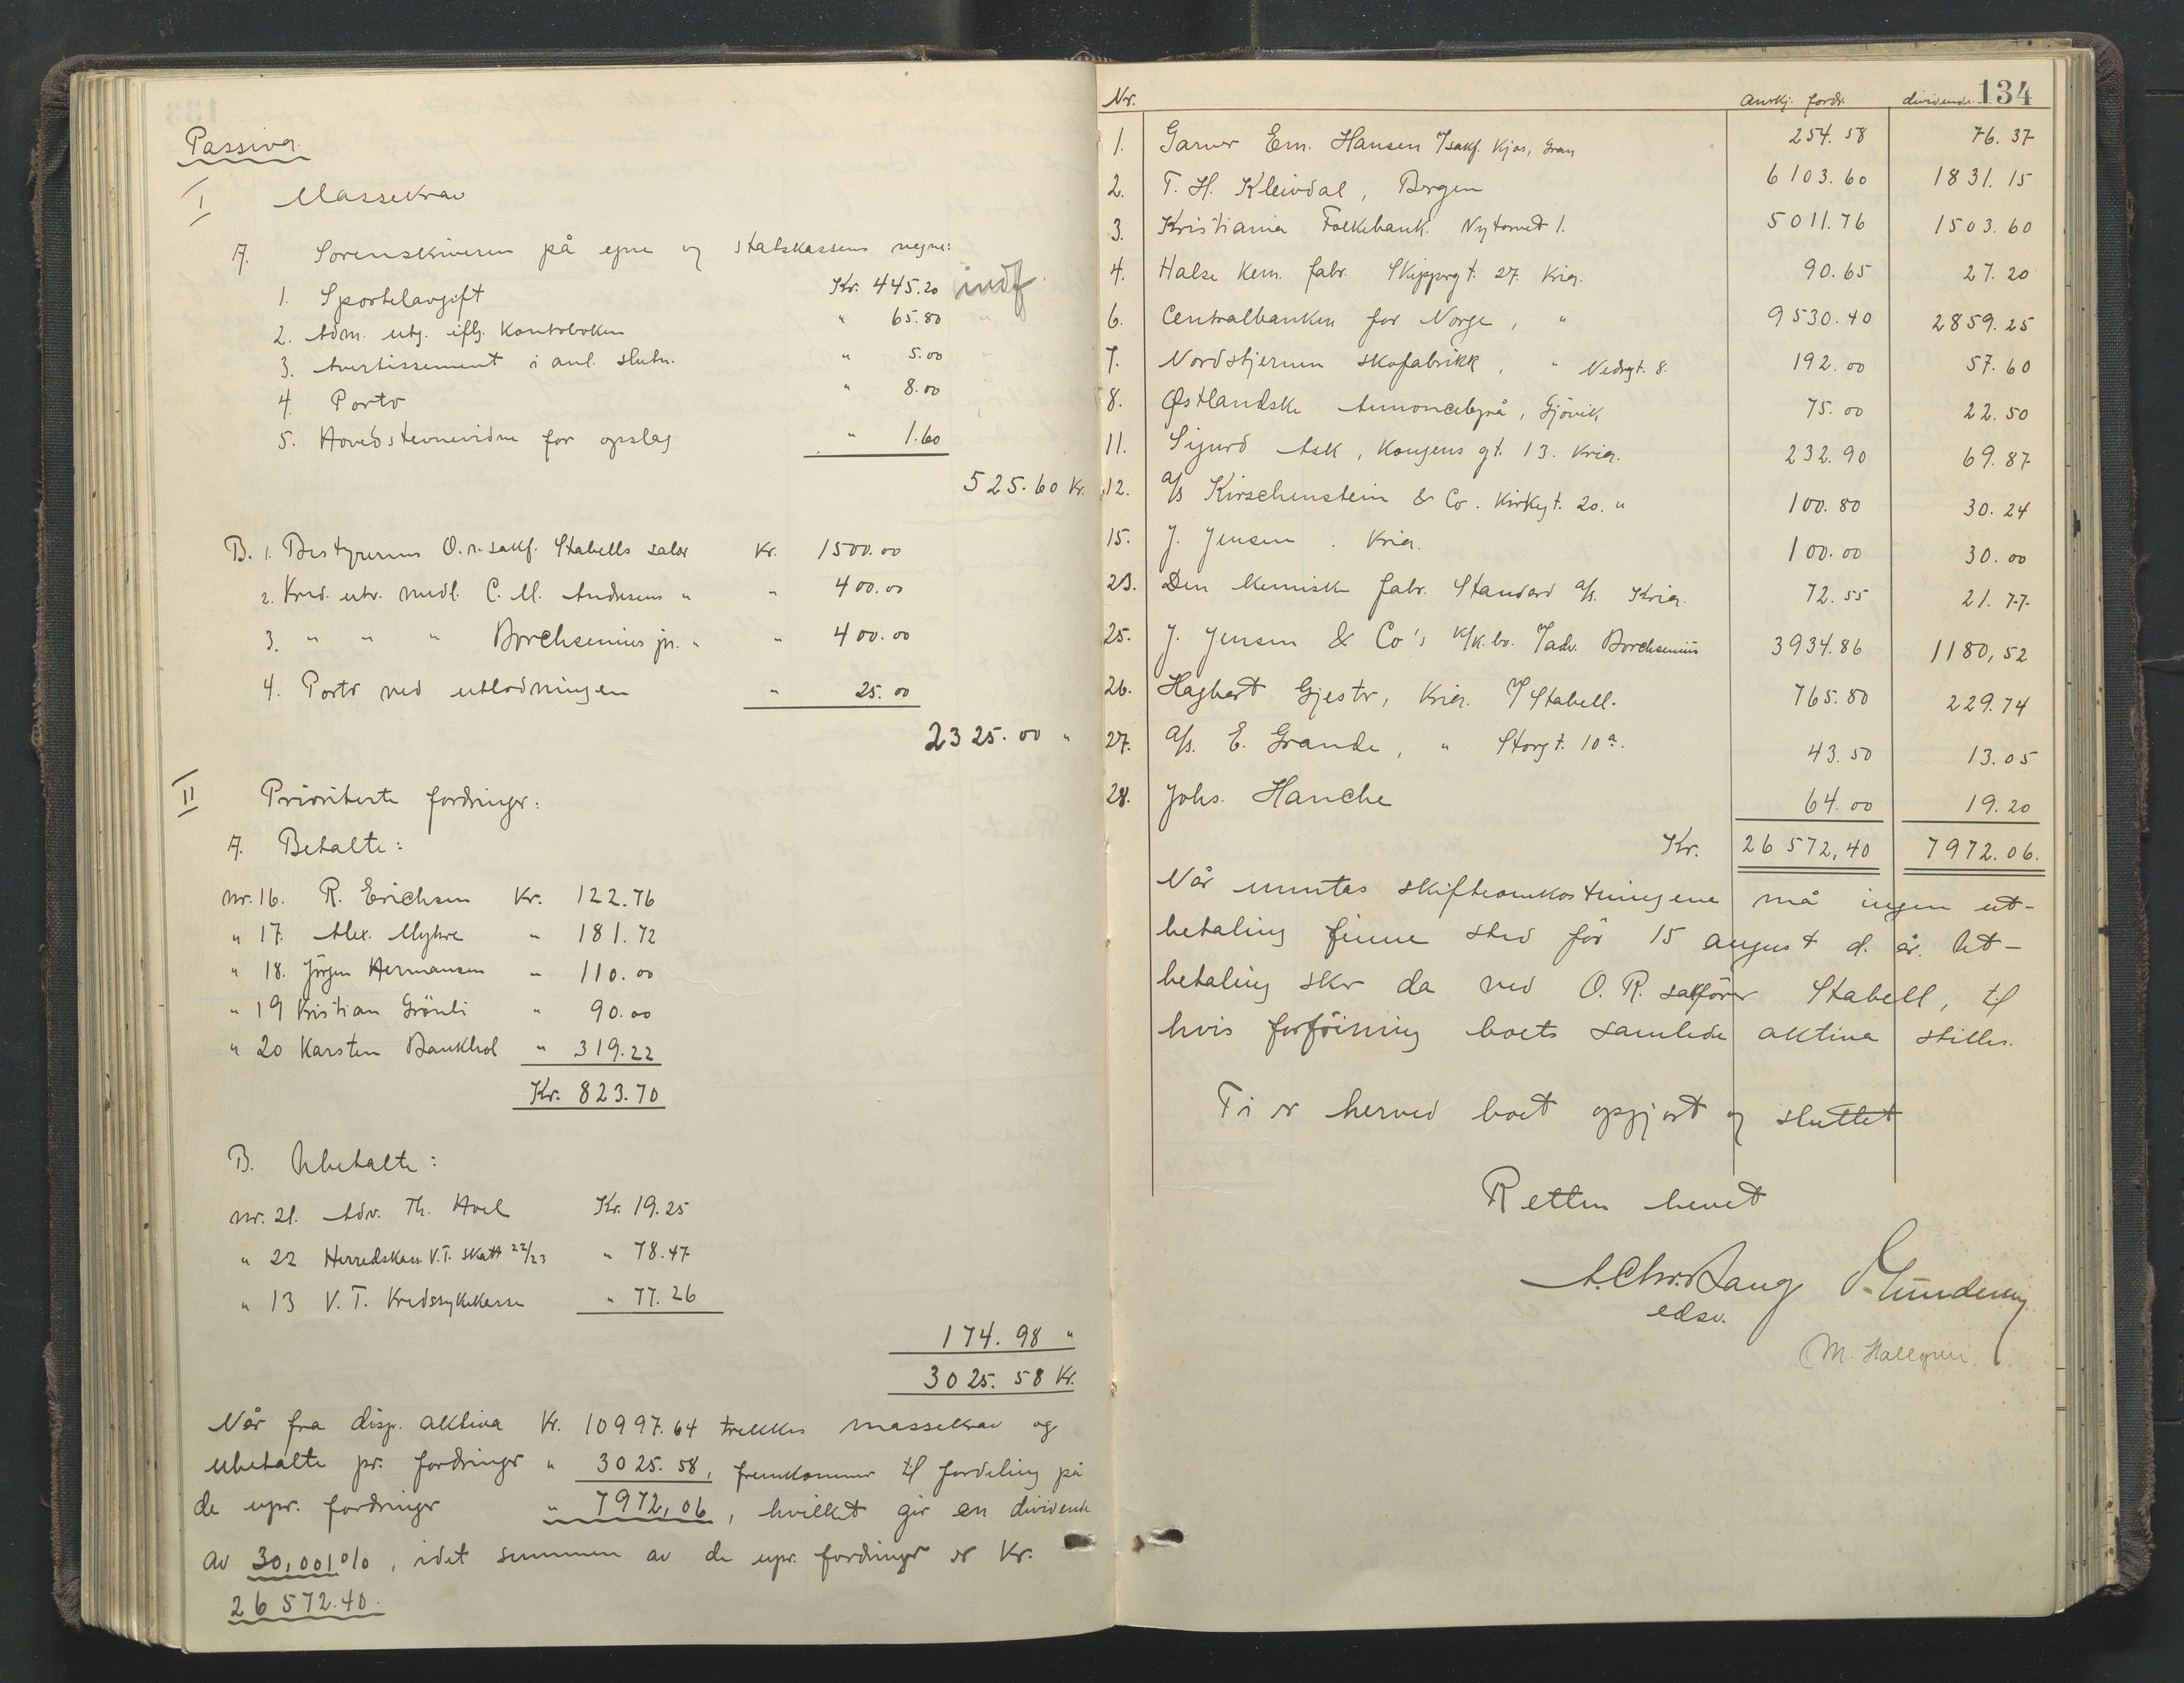 Passiva.
I Massekrav
A. Sorenskriveren på egne og statskassens vegne:
1. Sportelavgift Kr. 445.20 indf.
2. Adm. utg. iflg. kontoboken " 65.80
3. Avertissement i anl. slutn. " 5.00
4. Porto " 8.00
5. Hovedstevnevidne for opslag " 1.60
525.60 Kr.
B. 1. Bestyrerens O.r.sakf. Stabells salær Kr. 1500.00
2. Kred. utv. medl. C. M. Andresens " " 400.00
3. " " " Borchsenius jr. " " 400.00
4. Porto ved utlodningen " 25.00
2325.00 "
II Prioriterte fordringer:
A. Betalte:
nr. 16. R. Erichsen Kr. 122.76
" 17. Alex. Myhre " 181.72
" 18. Jörgen Hermansen " 110.00
" 19 Kristian Grönli " 90.00
" 20 Karsten Bankhol " 319.22
Kr. 823.70
B. Ubetalte:
nr. 21. Adv. Th. Hoel Kr. 19.25
" 22 Herredskass. V.T. skatt 22/23 " 78.47
" 13 V. T. Kredssykekasse " 77.26
174.98 "
3025.58 Kr.
Når fra disp. aktiva Kr. 10997.64 trekkes massekrav og
ubetalte pr. fordringer " 3025.58, fremkommer til fordeling på
de upr. fordringer " 7972,06, hvilket gir en dividende
av 30,001%, idet summen av de upr. fordringer er Kr.
26572.40.
134
Nr. anerkj. fordr. dividende
1. Garver Em. Hansen v/sakf. Kjos, Gran 254.58 76.37
2. T. H. Kleivdal, Bergen 6103.60 1831.15
3. Kristiania Folkebank. Nytorvet 1. 5011.76 1503.60
4. Halse kem. fabr. Skippergt. 27. Kria. 90.65 27.20
6. Centralbanken for Norge, " 9530.40 2859.25
7. Nordstjernen skofabrikk, " Nedregt. 8. 192.00 57.60
8. Østlandske Annoncebyrå, Gjövik 75.00 22.50
11. Sigurd Ask, Kongens gt. 13. Kria. 232.90 69.87
12. a/s Kirschenstein & Co. Kirkegt. 20. " 100.80 30.24
15. J. Jensen. Kria. 100.00 30.00
23. Den kemiske fabr. Standard a/s. Kria. 72.55 21.77
25. J. Jensen & Co's k/k.bo. v/adv. Borchsenius 3934.86 1180,52
26. Hagbart Gjestr, Kria. v/Stabell. 765.80 229.74
27. a/s. E. Grande, " Storgt. 10a. 43.50 13.05
28. Johs. Hanche 64.00 19.20
Kr. 26572,40 7972.06.
Når unntas skifteomkostningene må ingen ut-
betaling finne sted før 15 august d. år. Ut-
betaling sker da ved O. R. sakfører Stabell, til
hvis forföining boets samlede aktiva stilles.
Ti er herved boet opgjort og sluttet
Retten hevet
A. Chr. Bang
edsv.
M. Hallgrен